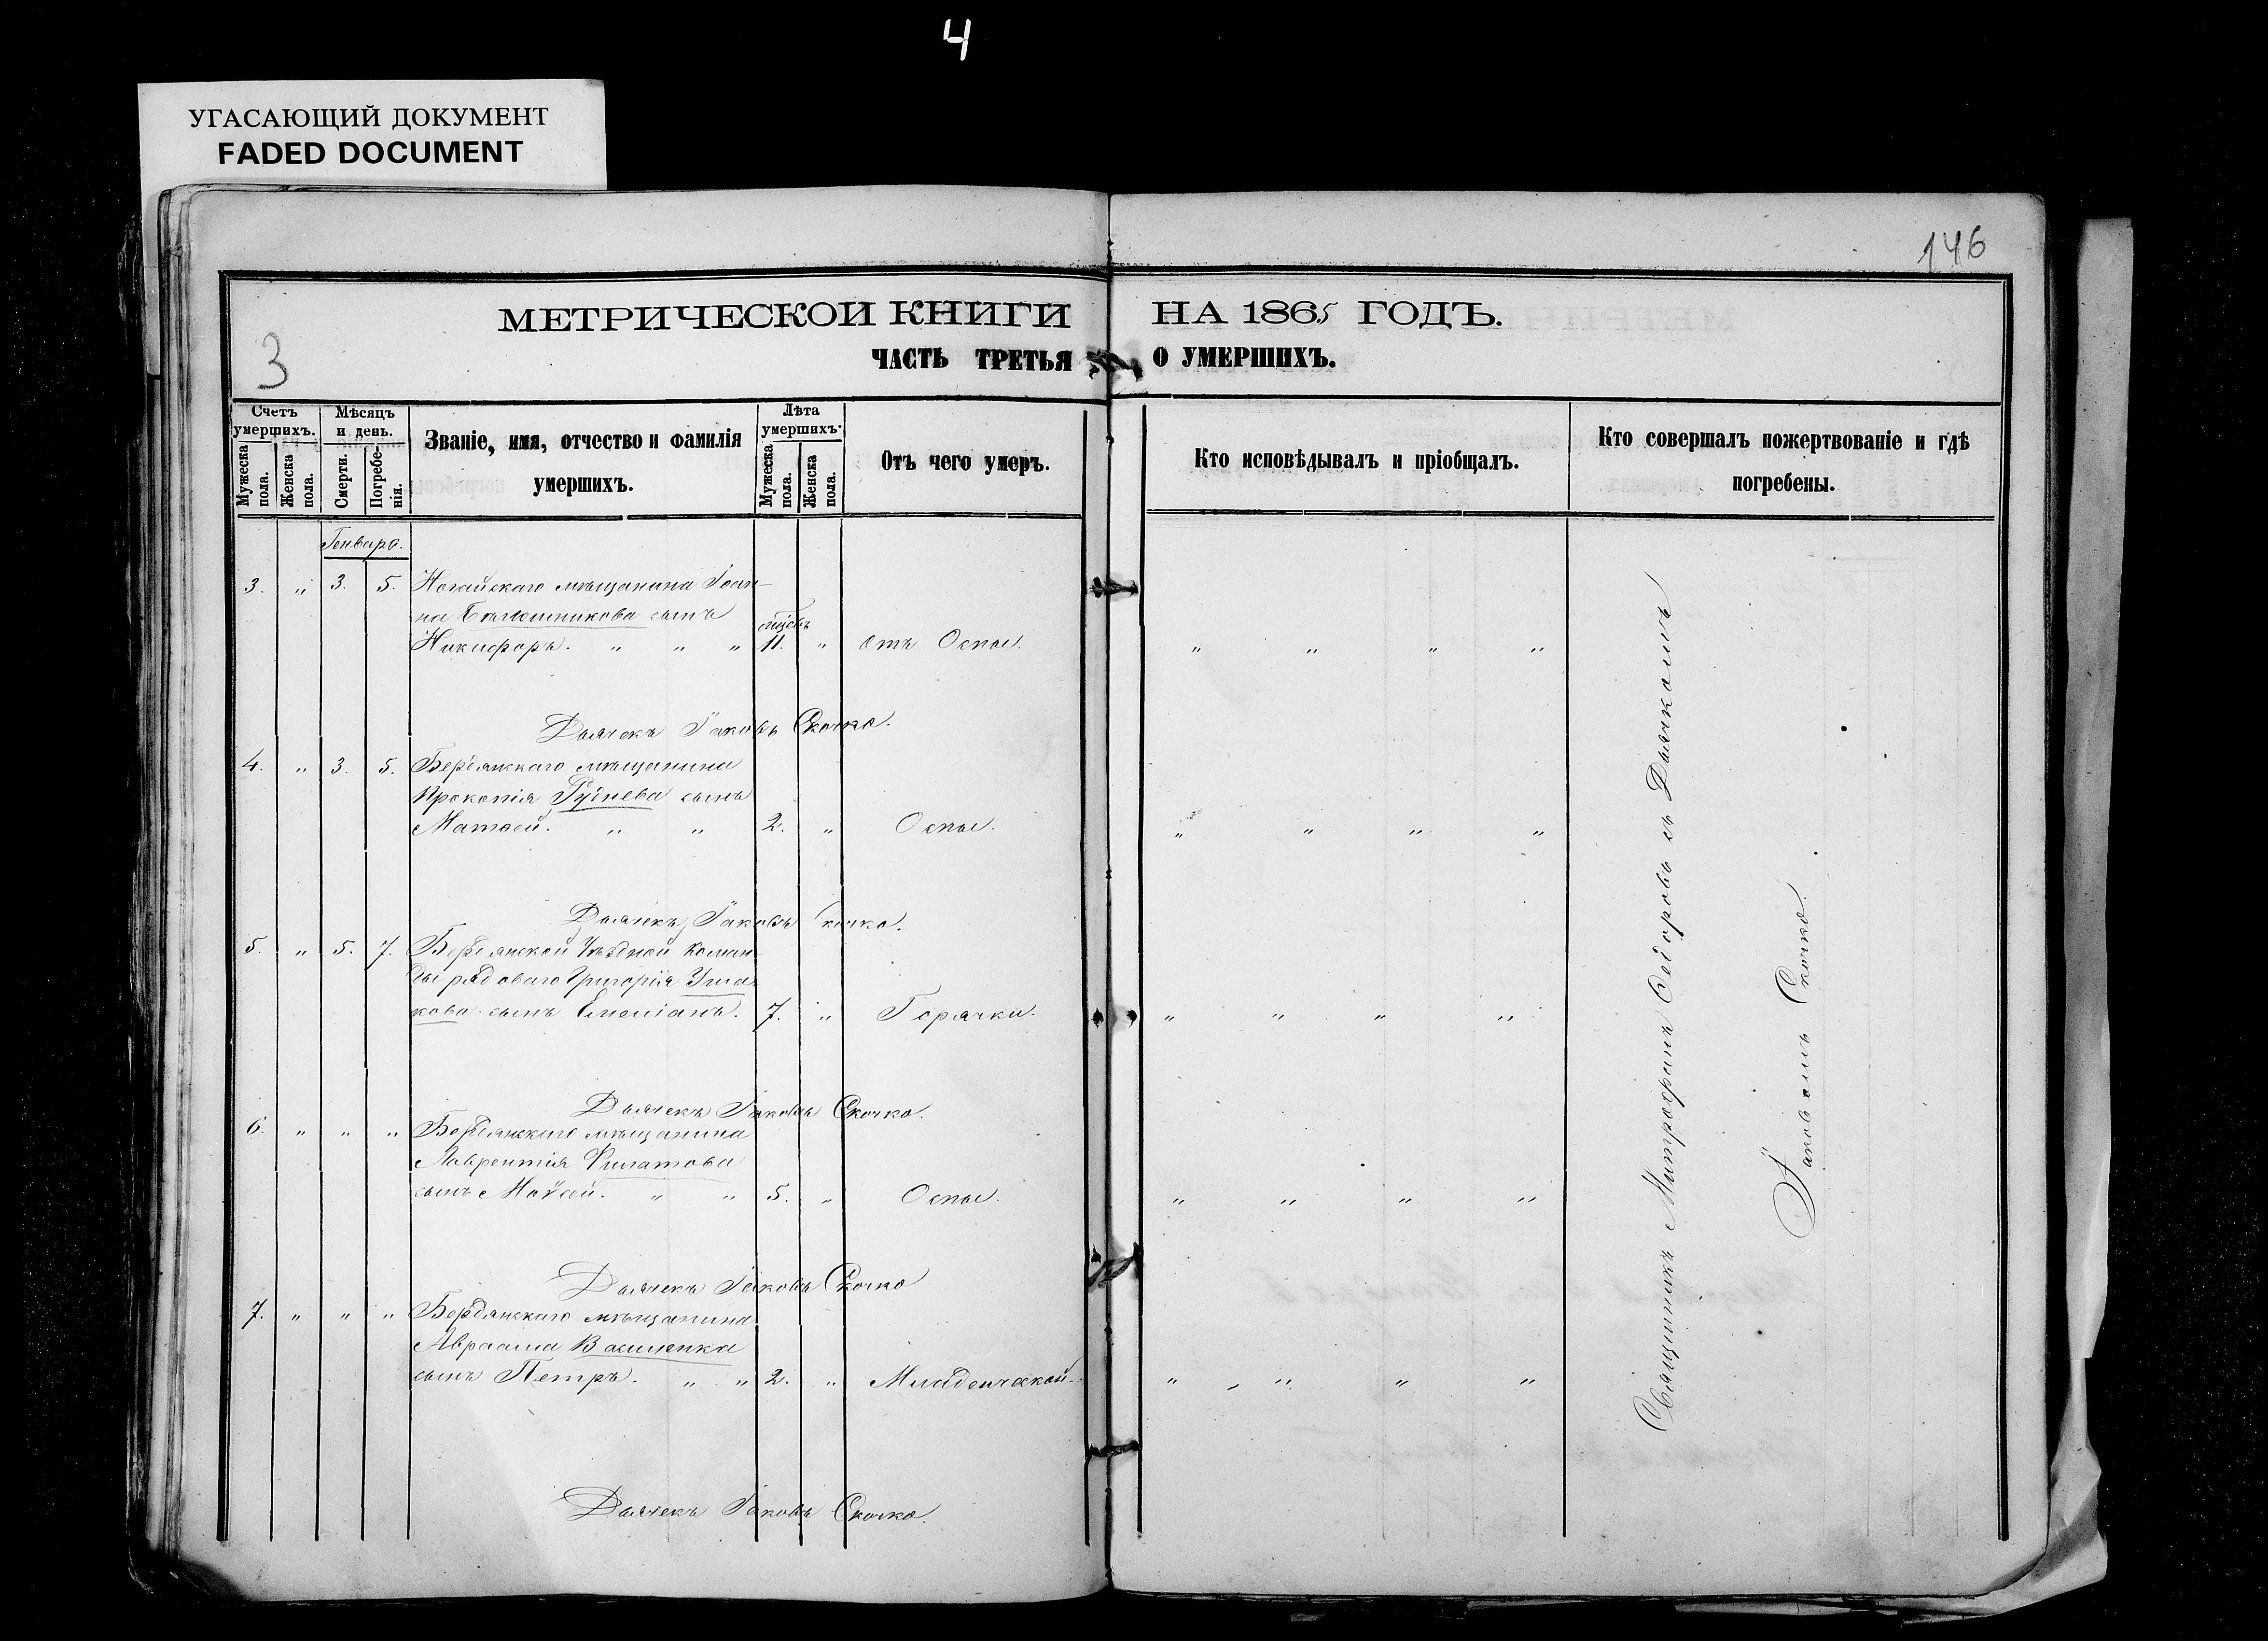 4
УГАСАЮЩИЙ ДОКУМЕНТ
FADED DOCUMENT
146
3
МЕТРИЧЕСКОЙ КНИГИ НА 1865 ГОДЪ.
ЧАСТЬ ТРЕТЬЯ О УМЕРШИХЪ.
Счетъ умершихъ.
Мужеска пола.
Женска пола.
Мѣсяцъ и день.
Смерти.
Погребенія.
Званіе, имя, отчество и фамилія умершихъ.
Лѣта умершихъ.
Мужеска пола.
Женска пола.
Отъ чего умеръ.
Кто исповѣдывалъ и пріобщалъ.
Кто совершалъ пожертвованіе и гдѣ погребены.
Генваря.
3. " 3. 5. Ногайскаго мѣщанина Іоан-
на сынъ
Никифоръ. " " " 11. " отъ Оспы. " " " "
Дьячекъ Іаковъ Скочко.
4. " 3. 5. Бердянскаго мѣщанина
Прокопія Гуднева сынъ
Матѳей. " " 2. " Оспы. " " " "
Дьячекъ Іаковъ Скочко.
5. " 5. 7. Бердянской Уѣздной Коман-
ды рядоваго Григорія Уша-
кова сынъ Емеліанъ. 7. " Горячки. " " " "
Дьячекъ Іаковъ Скочко.
6. " " " Бердянскаго мѣщанина
Лаврентія Филатова
сынъ Моѵсей. " " 5. " Оспы. " " " "
Дьячекъ Іаковъ Скочко
7. " " " Бердянскаго мѣщанина
Авраама Василенка
сынъ Петръ. " " 2. " Младенческой. " " " "
Дьячекъ Іаковъ Скочко.
Священникъ Митрофанъ Ѳедоровъ съ Дьячкомъ
Іаковомъ Скочко.